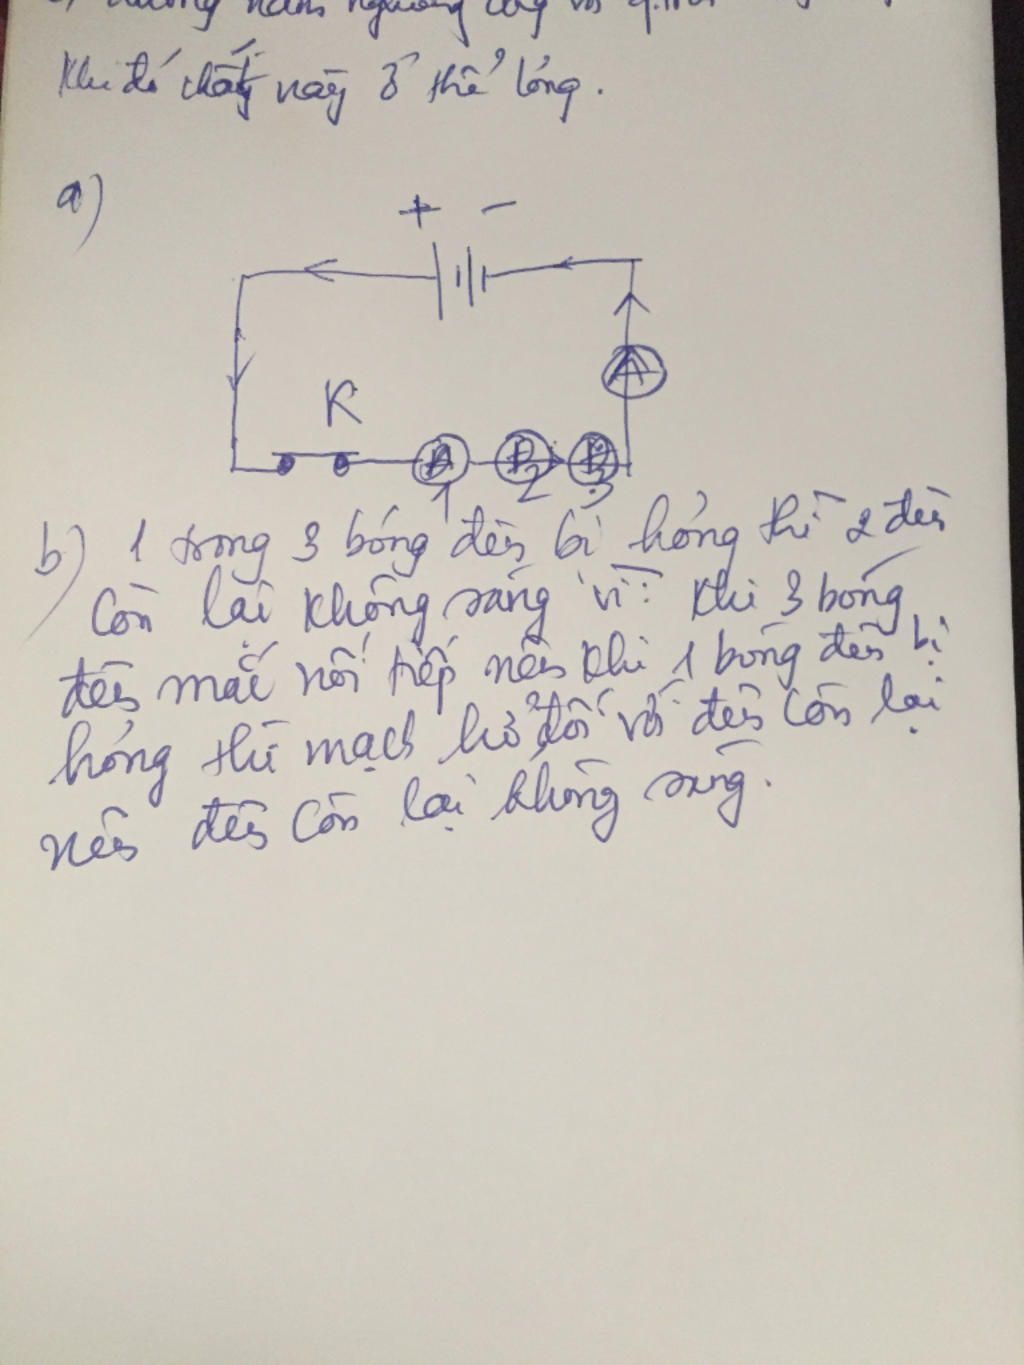 Khi đó chất này ở thể lỏng.
a)
+ -
A
K
Đ1 Đ2 Đ3
b) 1 trong 3 bóng đèn bị hỏng thì 2 đèn
còn lại không sáng vì: khi 3 bóng
đèn mắc nối tiếp nên khi 1 bóng đèn bị
hỏng thì mạch hở đối với đèn còn lại
nên đèn còn lại không sáng.